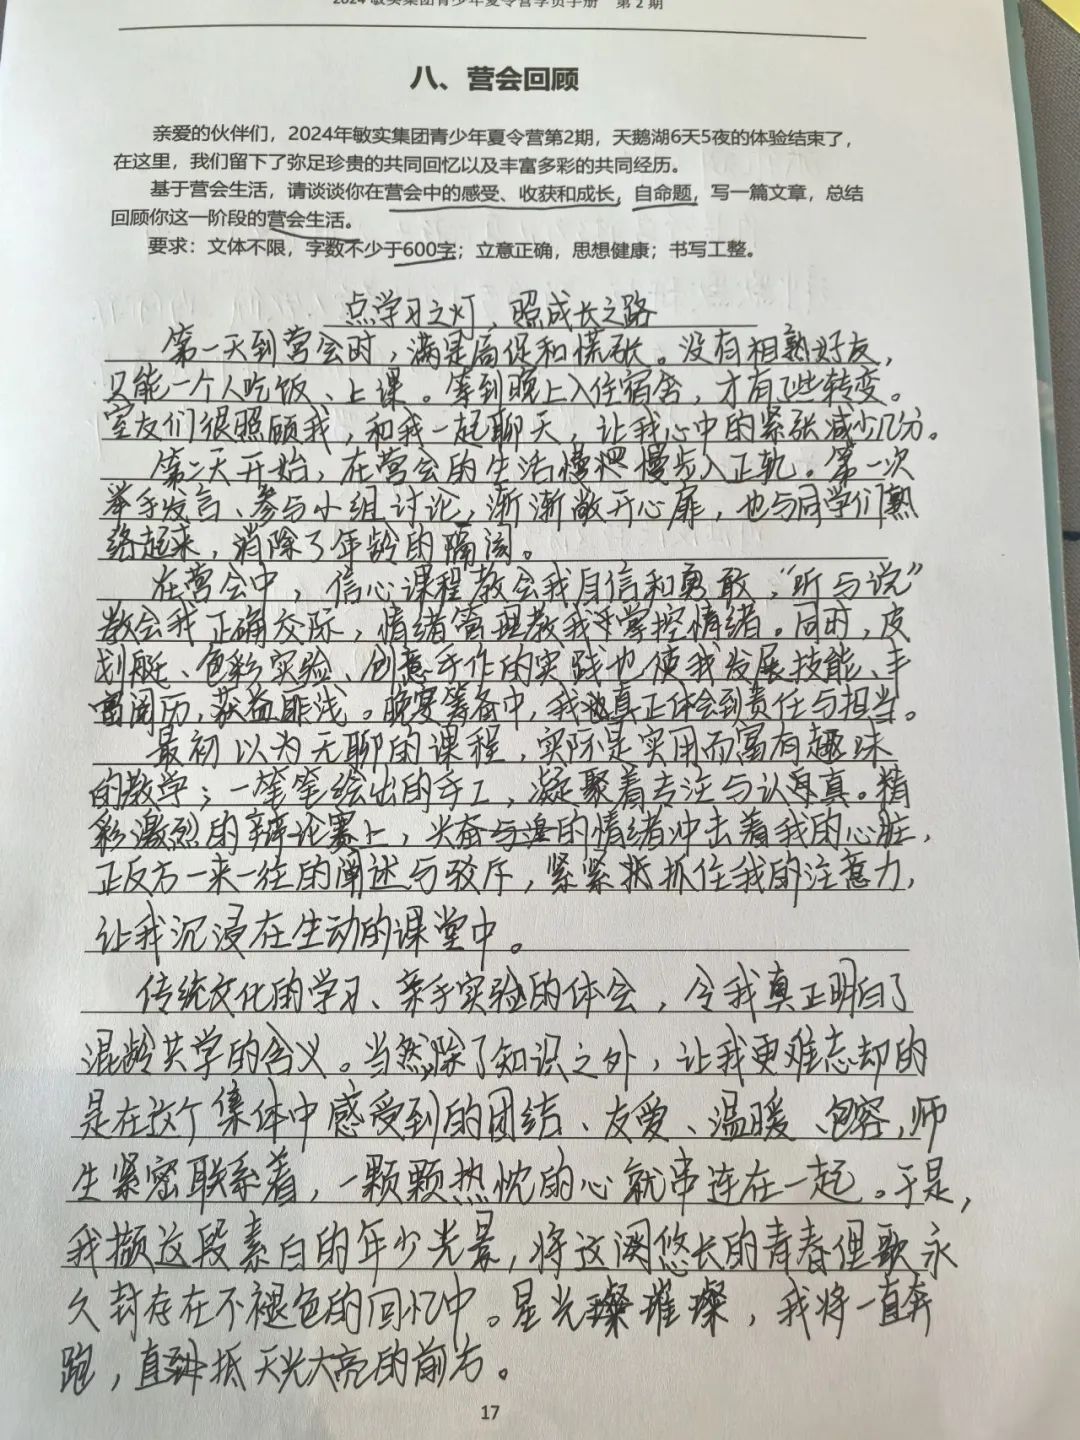 2024敏实集团青少年夏令营学员手册 第2期
八、营会回顾
亲爱的伙伴们，2024年敏实集团青少年夏令营第2期，天鹅湖6天5夜的体验结束了，
在这里，我们留下了弥足珍贵的共同回忆以及丰富多彩的共同经历。
基于营会生活，请谈谈你在营会中的感受、收获和成长，自命题，写一篇文章，总结
回顾你这一阶段的营会生活。
要求：文体不限，字数不少于600字；立意正确，思想健康；书写工整。
点学习之灯，照成长之路
第一天到营会时，满是局促和慌张。没有相熟好友，
只能一个人吃饭、上课。等到晚上入住宿舍，才有了些转变。
室友们很照顾我，和我一起聊天，让我心中的紧张减少几分。
第二天开始，在营会的生活慢慢步入正轨。第一次
举手发言、参与小组讨论，渐渐敞开心扉，也与同学们熟
络起来，消除了年龄的隔阂。
在营会中，信心课程教会我自信和勇敢，“听与说”
教会我正确交际，情绪管理教我掌控情绪。同时，皮
划艇、色彩实验、创意手作的实践也使我发展技能、丰
富阅历，获益匪浅。晚宴筹备中，我也真正体会到责任与担当。
最初以为无聊的课程，实际是实用而富有趣味
的教学；一笔笔绘出的手工，凝聚着专注与认真。精
彩激烈的辩论赛上，兴奋与的情绪冲击着我的心脏，
正反方一来一往的阐述与驳斥，紧紧抓住我的注意力，
让我沉浸在生动的课堂中。
传统文化的学习、亲手实验的体会，令我真正明白了
混龄共学的含义。当然，除了知识之外，让我更难忘却的
是在这个集体中感受到的团结、友爱、温暖、包容，师
生紧密联系着，一颗颗热忱的心就串连在一起。于是，
我撷这段素白的年少光景，将这阕悠长的青春俚歌永
久封存在不褪色的回忆中。星光璀璨，我将一直奔
跑，直抵天光大亮的前方。
17